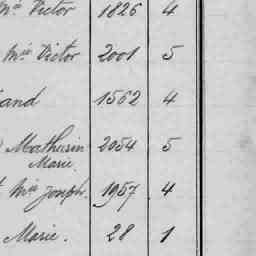 Mie Victor 1826 4
Mie Victor 2001 5
and 1562 4
Mathurin 2054 5
Marie
Mie Joseph. 1957 4
Marie. 28 1